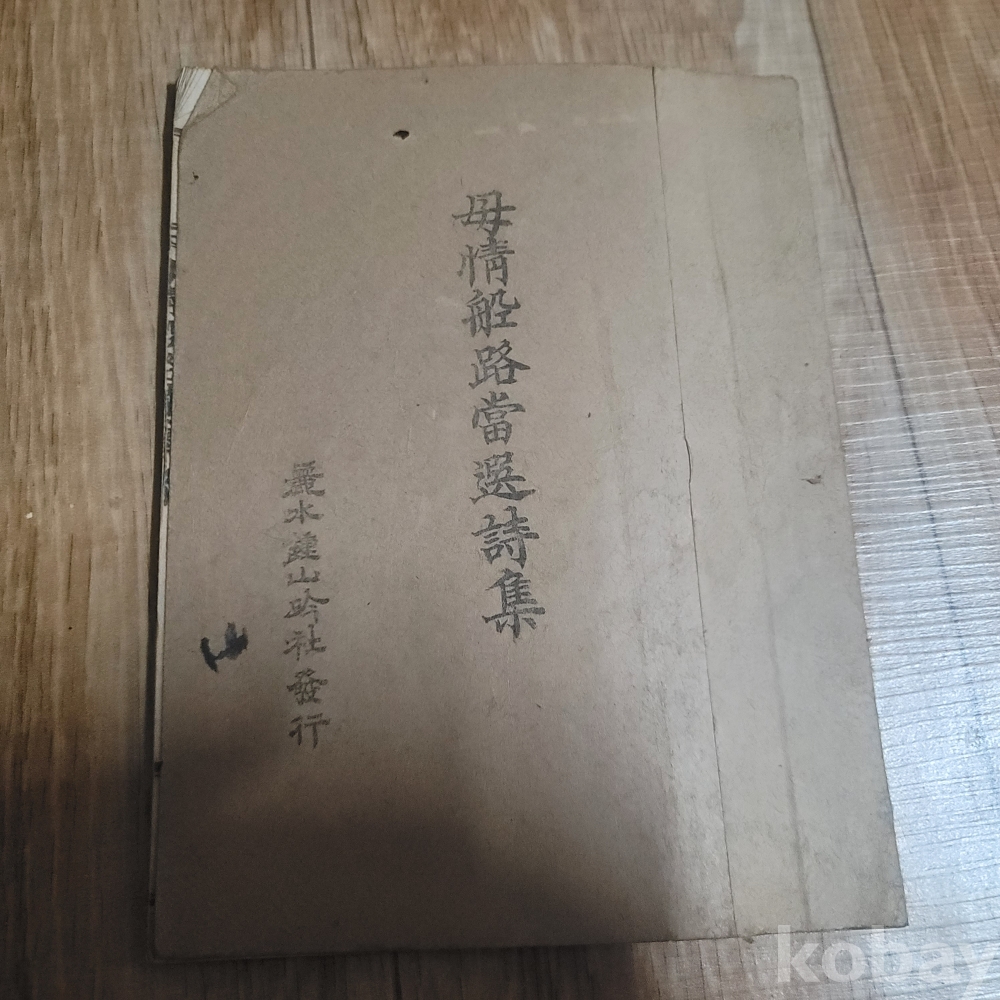 母情船路當選詩集
麗水鍾山吟社發行
kobay